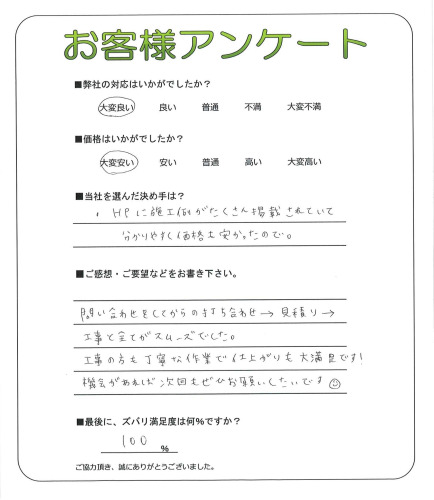 お客様アンケート
■弊社の対応はいかがでしたか？
大変良い 良い 普通 不満 大変不満
■価格はいかがでしたか？
大変安い 安い 普通 高い 大変高い
■当社を選んだ決め手は？
・HPに施工例がたくさん掲載されていて
分かりやすく価格も安かったので。
■ご感想・ご要望などをお書き下さい。
問い合わせをしてからの打ち合わせ→見積り→
工事と全てがスムーズでした。
工事の方も丁寧な作業で仕上がりも大満足です!
機会があれば次回もぜひお願いしたいです☺
■最後に、ズバリ満足度は何%ですか？
100 %
ご協力頂き、誠にありがとうございました。